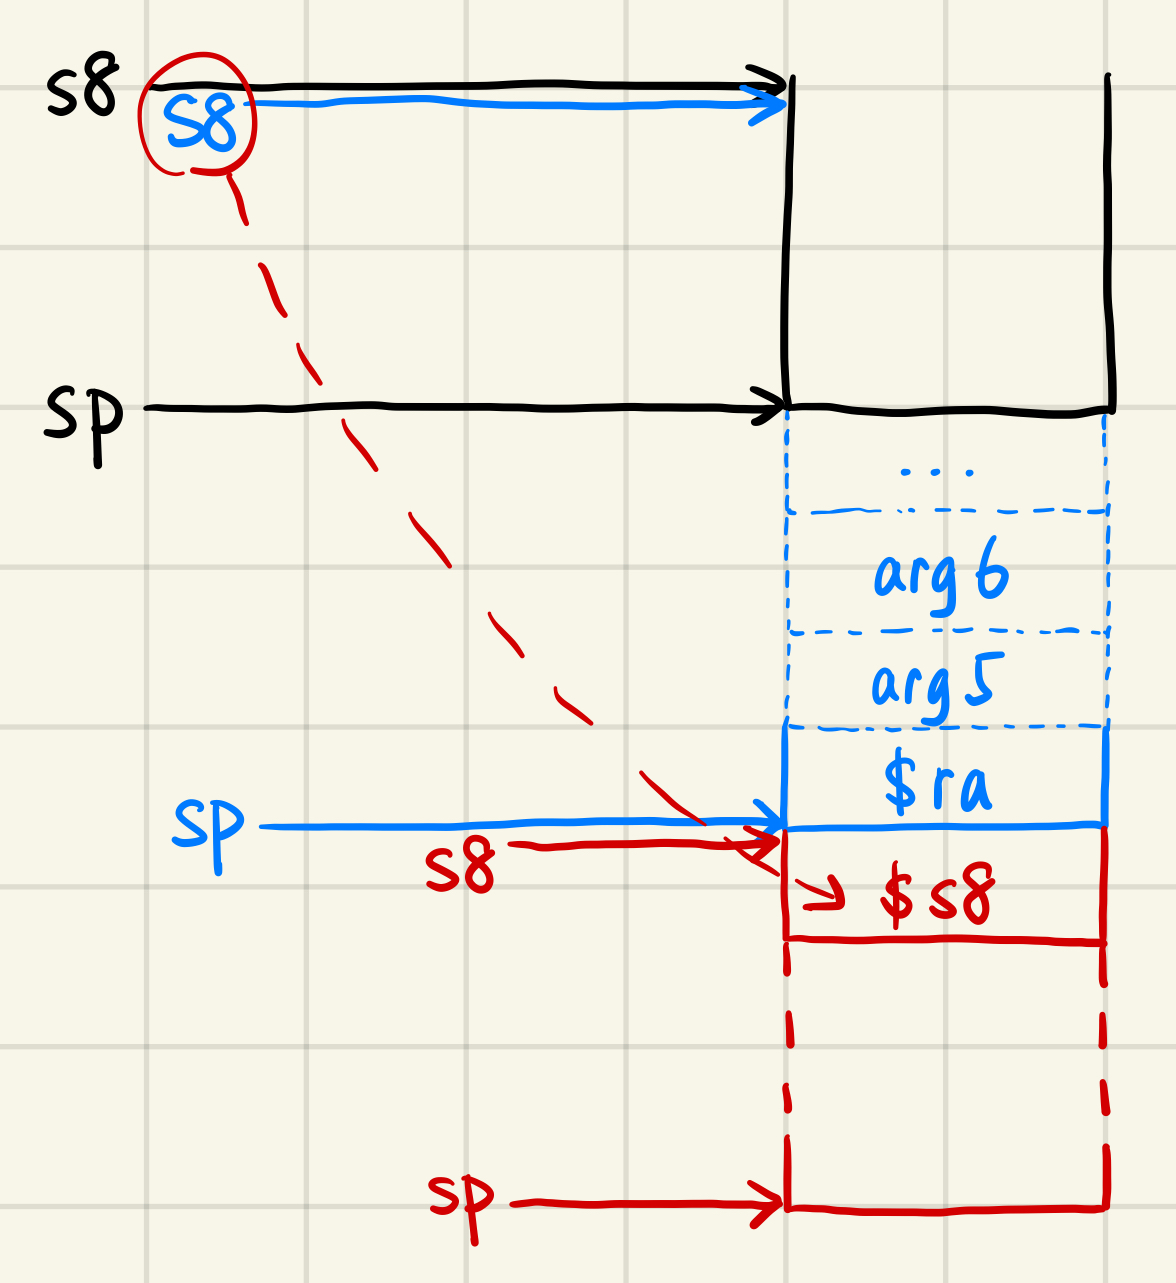 s8
s8
sp
...
arg 6
arg 5
$ra
sp
s8
$s8
sp